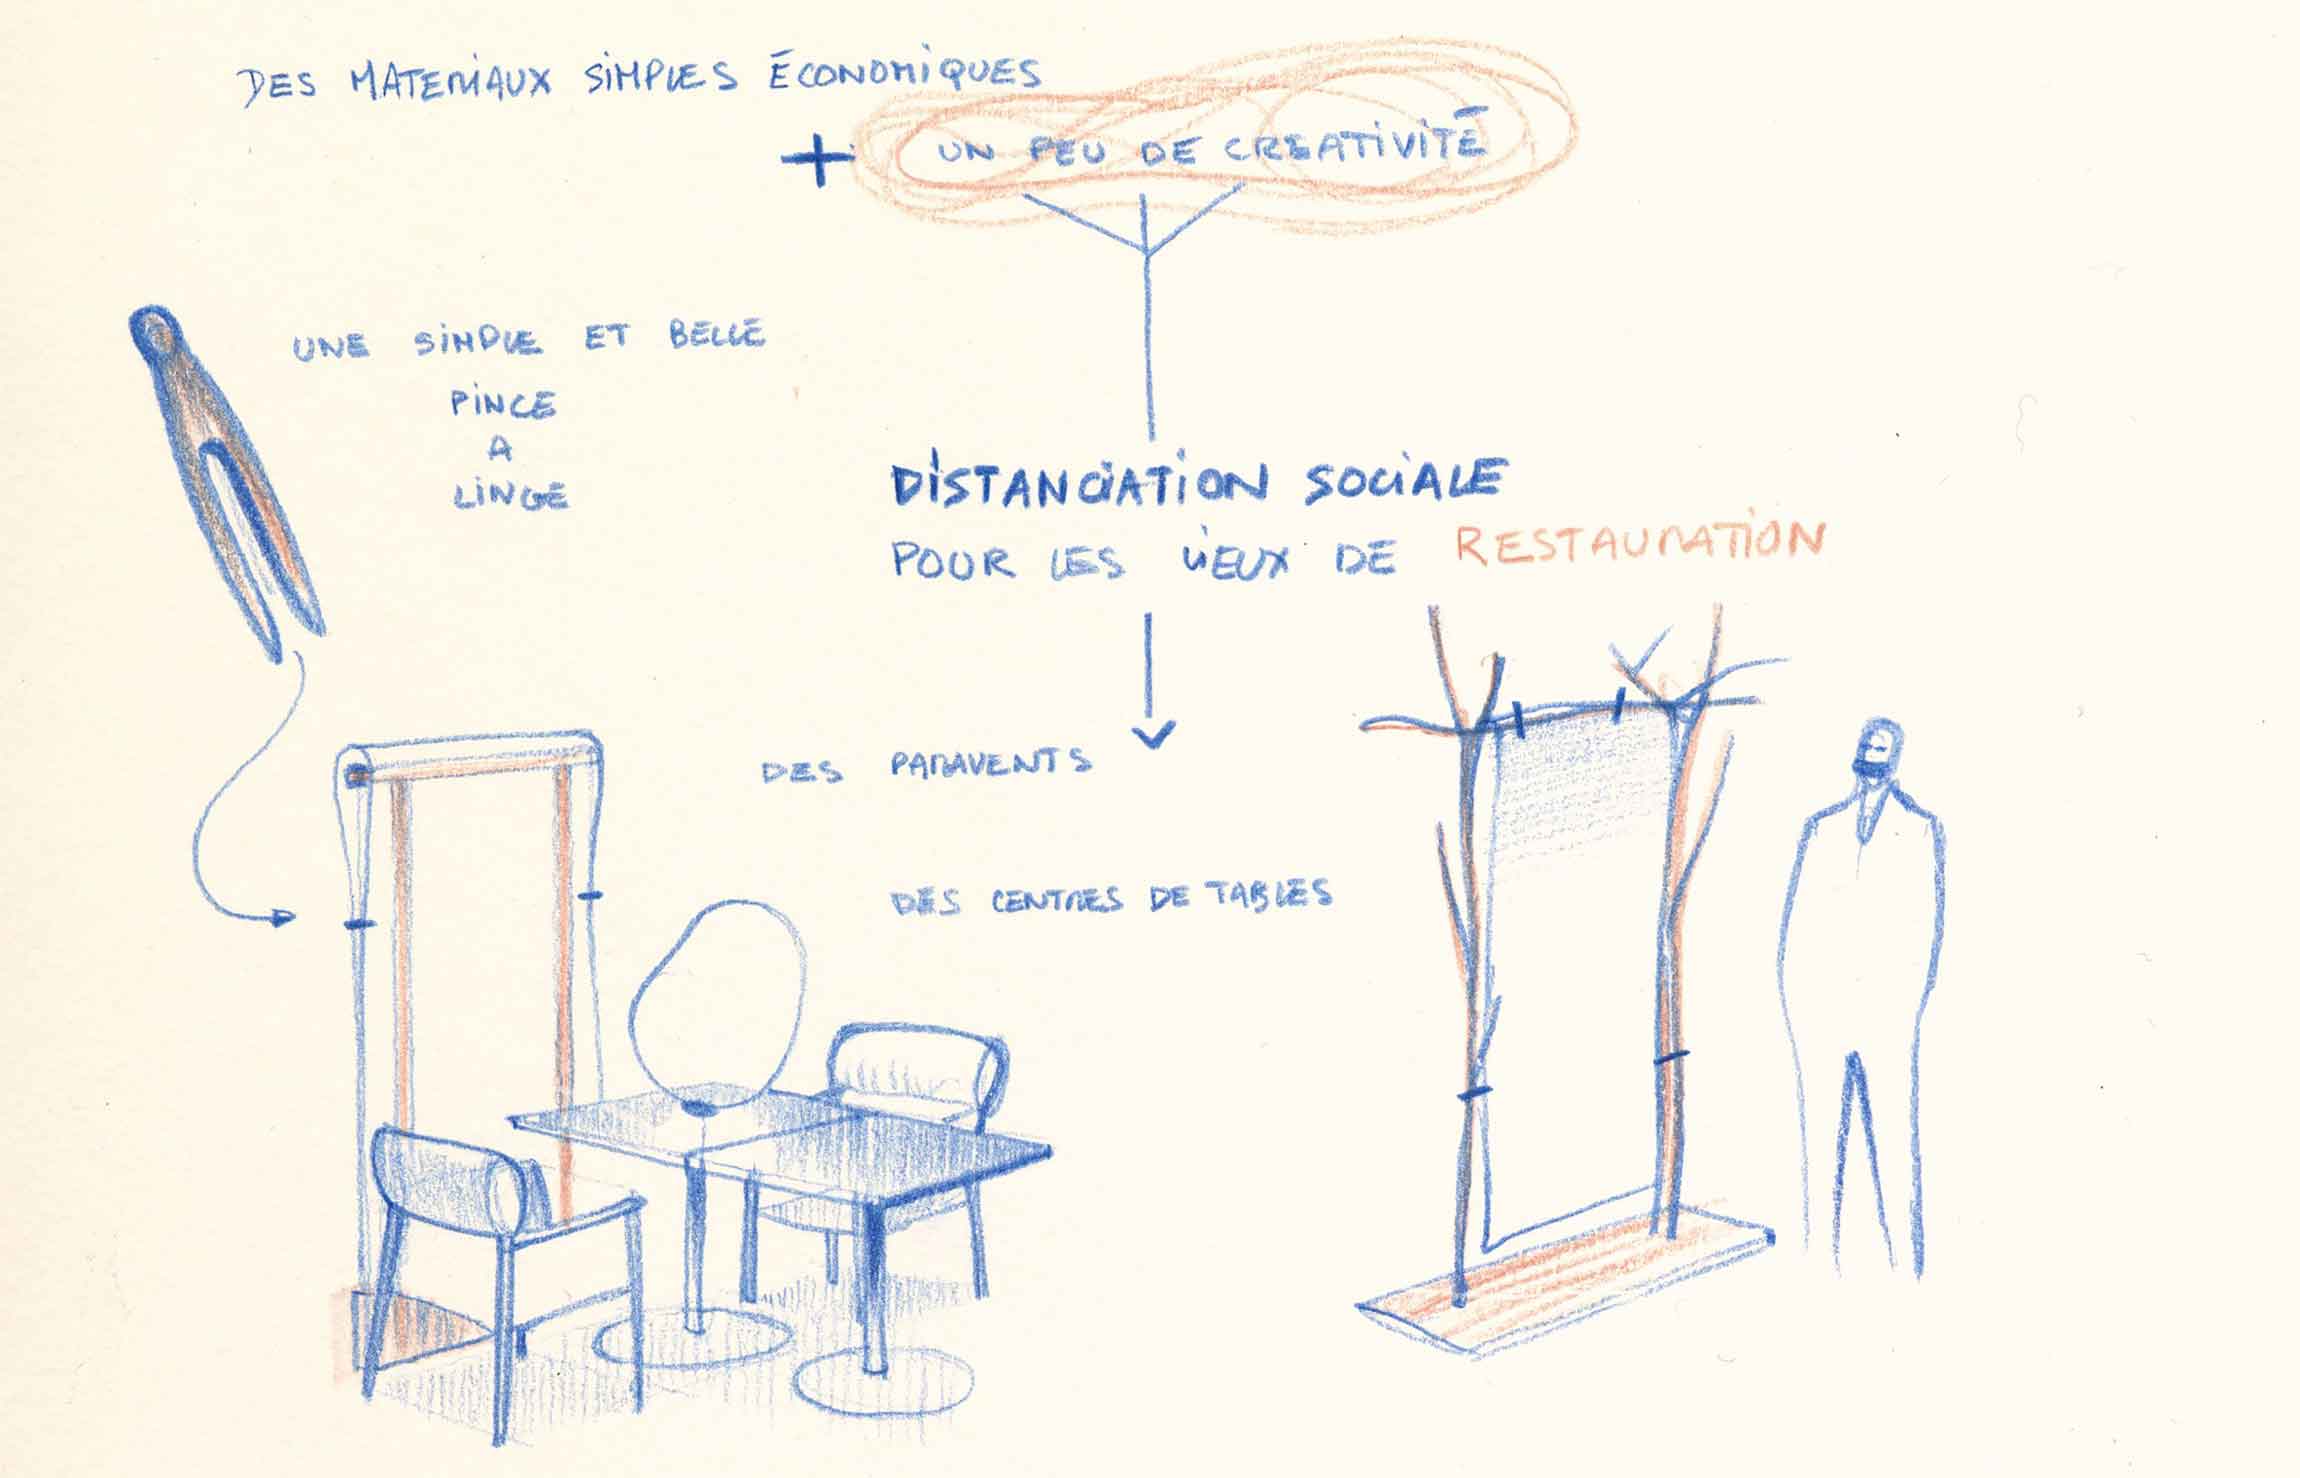 DES MATERIAUX SIMPLES ÉCONOMIQUES
+ UN PEU DE CREATIVITÉ
UNE SIMPLE ET BELLE
PINCE
A
LINGE
DISTANCIATION SOCIALE
POUR LES LIEUX DE RESTAURATION
DES PARAVENTS
DES CENTRES DE TABLES